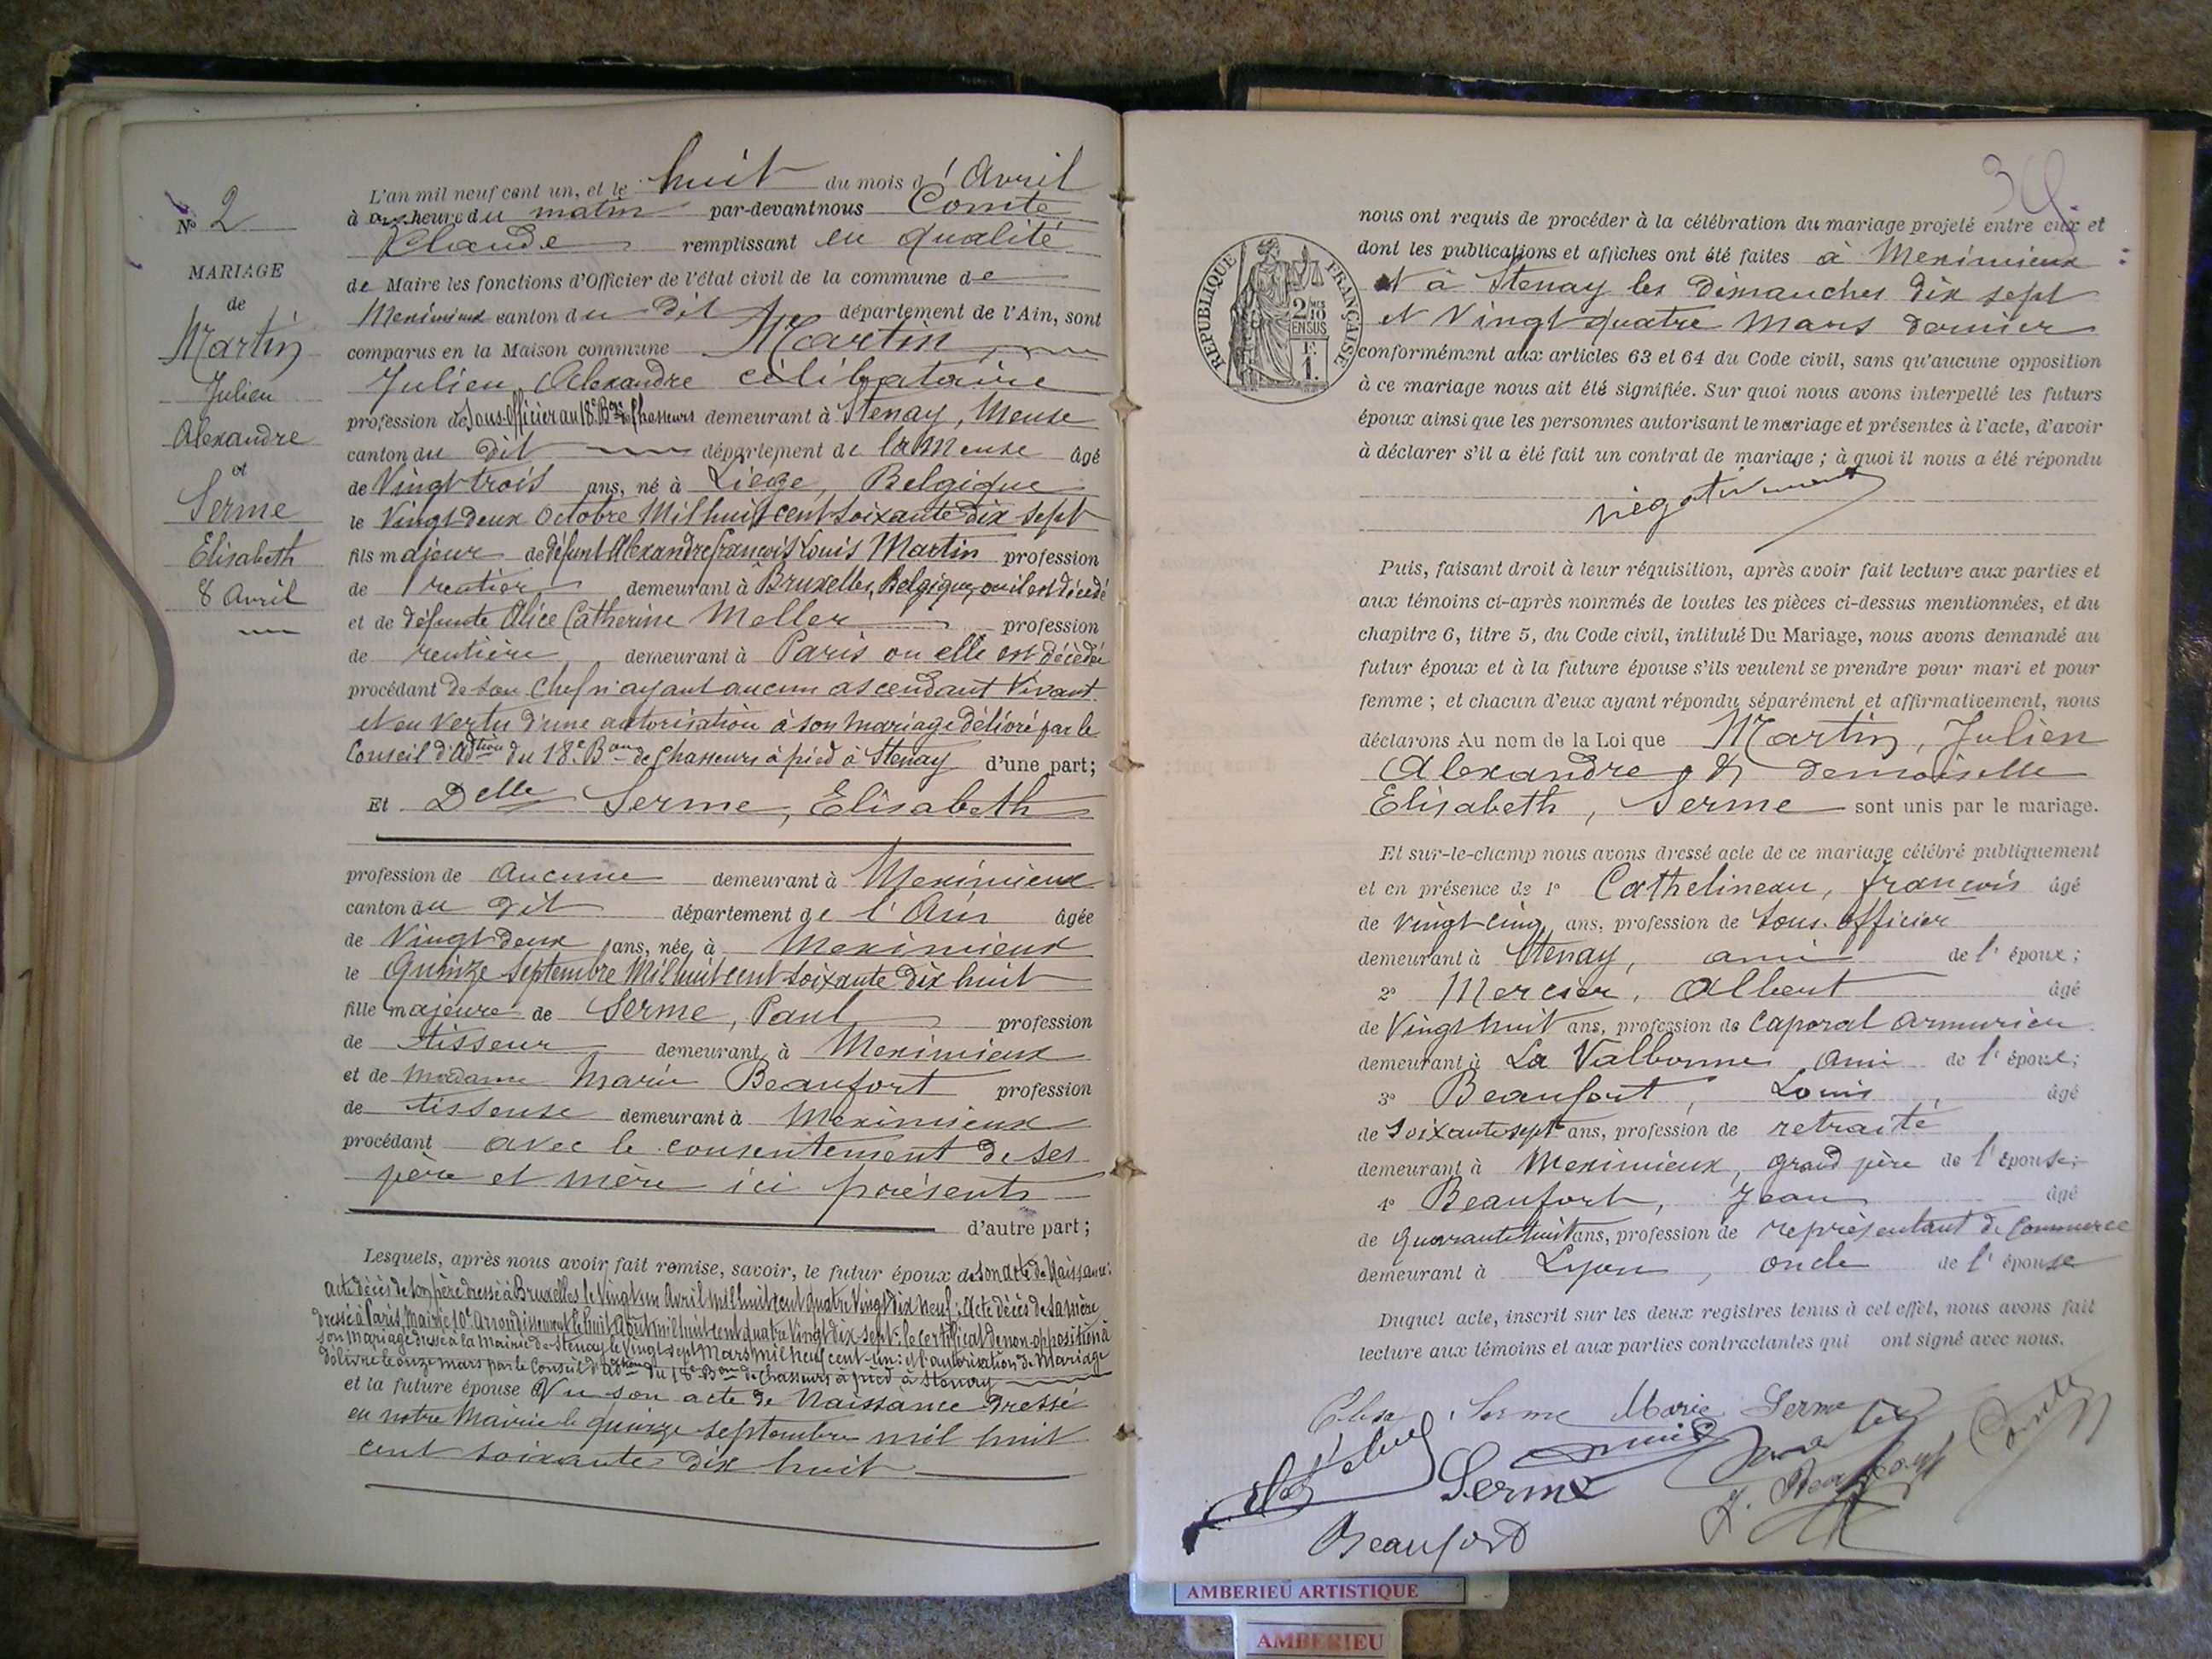 No 2
MARIAGE
de
Martin
Julien
Alexandre
et
Serme
Elisabeth
8 Avril
L'an mil neuf cent un, et le huit du mois d'Avril
à onze heure du matin par-devant nous Comte
Claude remplissant en qualité
de Maire les fonctions d'Officier de l'état civil de la commune de
Meximieux canton du dit département de l'Ain, sont
comparus en la Maison commune Martin,
Julien, Alexandre célibataire
profession de Sous-officier au 18e Bon de Chasseurs demeurant à Stenay, Meuse
canton du dit département de la Meuse âgé
de Vingt trois ans, né à Liège, Belgique
le Vingt deux Octobre Mil huit cent soixante dix sept
fils majeur de défunt Alexandre françois Louis Martin profession
de rentier demeurant à Bruxelles, Belgique, où il est décédé
et de défunte Alice Catherine Meller profession
de rentière demeurant à Paris ou elle est décédée
procédant de son Chef n'ayant aucun ascendant Vivant
et en vertu d'une autorisation à son mariage délivré par le
Conseil d'Adtion du 18e Bon de Chasseurs à pied à Stenay d'une part;
Et Delle Serme, Elisabeth
profession de aucune demeurant à Meximieux
canton du dit département de l'Ain âgée
de Vingt deux ans, née à Meximieux
le Quinze Septembre Mil huit cent soixante dix huit
fille majeure de Serme, Paul profession
de tisseur demeurant à Meximieux
et de madame Marie Beaufort profession
de tisseuse demeurant à Meximieux
procédant avec le consentement de ses
père et mère ici présents
d'autre part;
Lesquels, après nous avoir fait remise, savoir, le futur époux de son acte de Naissance:
acte décès de son père dressé à Bruxelles le Vingt un Avril mil huit cent quatre Vingt dix neuf; Acte décès de sa mère
dressé à Paris, Mairie 10e arrondissement le huit Août mil huit cent quatre Vingt dix-sept. le certificat de non-opposition à
son mariage dressé à la Mairie de Stenay le Vingt sept Mars mil neuf cent-un: et l'autorisation de Mariage
délivré le onze mars par le Conseil d'Adtion du 18e Bon de Chasseurs à pied à Stenay
et la future épouse Vu son acte de Naissance dressé
en notre Mairie le quinze septembre mil huit
cent soixante dix huit
REPUBLIQUE FRANÇAISE
nous ont requis de procéder à la célébration du mariage projeté entre eux et
dont les publications et affiches ont été faites à Meximieux
et à Stenay les dimanches dix sept
et Vingt quatre Mars dernier
conformément aux articles 63 et 64 du Code civil, sans qu'aucune opposition
à ce mariage nous ait été signifiée. Sur quoi nous avons interpellé les futurs
époux ainsi que les personnes autorisant le mariage et présentes à l'acte, d'avoir
à déclarer s'il a été fait un contrat de mariage; à quoi il nous a été répondu
négativement
Puis, faisant droit à leur réquisition, après avoir fait lecture aux parties et
aux témoins ci-après nommés de toutes les pièces ci-dessus mentionnées, et du
chapitre 6, titre 5, du Code civil, intitulé Du Mariage, nous avons demandé au
futur époux et à la future épouse s'ils veulent se prendre pour mari et pour
femme; et chacun d'eux ayant répondu séparément et affirmativement, nous
déclarons Au nom de la Loi que Martin, Julien
Alexandre & demoiselle
Elisabeth, Serme sont unis par le mariage.
Et sur-le-champ nous avons dressé acte de ce mariage célébré publiquement
et en présence de 1° Cathelineau, françois âgé
de vingt cinq ans, profession de Sous-officier
demeurant à Stenay, ami de l'époux;
2° Mercier, Albert âgé
de Vingt huit ans, profession de Caporal armurier
demeurant à La Valbonne ami de l'époux;
3° Beaufort, Louis, âgé
de Soixante sept ans, profession de retraité
demeurant à Meximieux, grand père de l'épouse;
4° Beaufort, Jean âgé
de Quarante huit ans, profession de représentant de Commerce
demeurant à Lyon, oncle de l'épouse
Duquel acte, inscrit sur les deux registres tenus à cet effet, nous avons fait
lecture aux témoins et aux parties contractantes qui ont signé avec nous.
Serme Marie Serme
Serme
J. Beaufort
Comte
Beaufort
AMBERIEU ARTISTIQUE
AMBERIEU